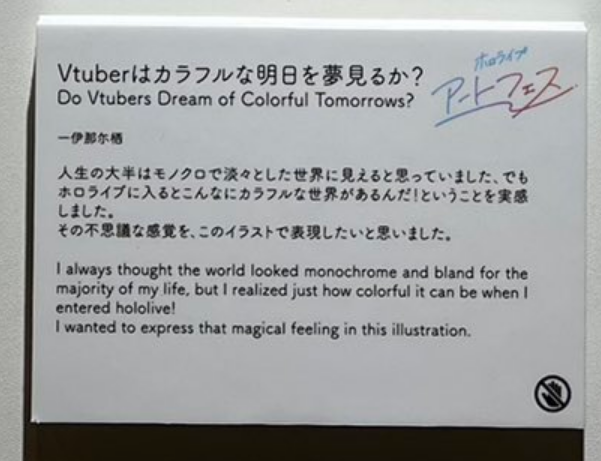 Vtuberはカラフルな明日を夢見るか？
Do Vtubers Dream of Colorful Tomorrows?
ホロライブ
アートフェス
一伊那尓栖
人生の大半はモノクロで淡々とした世界に見えると思っていました、でも
ホロライブに入るとこんなにカラフルな世界があるんだ！ということを実感
しました。
その不思議な感覚を、このイラストで表現したいと思いました。
I always thought the world looked monochrome and bland for the
majority of my life, but I realized just how colorful it can be when I
entered hololive!
I wanted to express that magical feeling in this illustration.